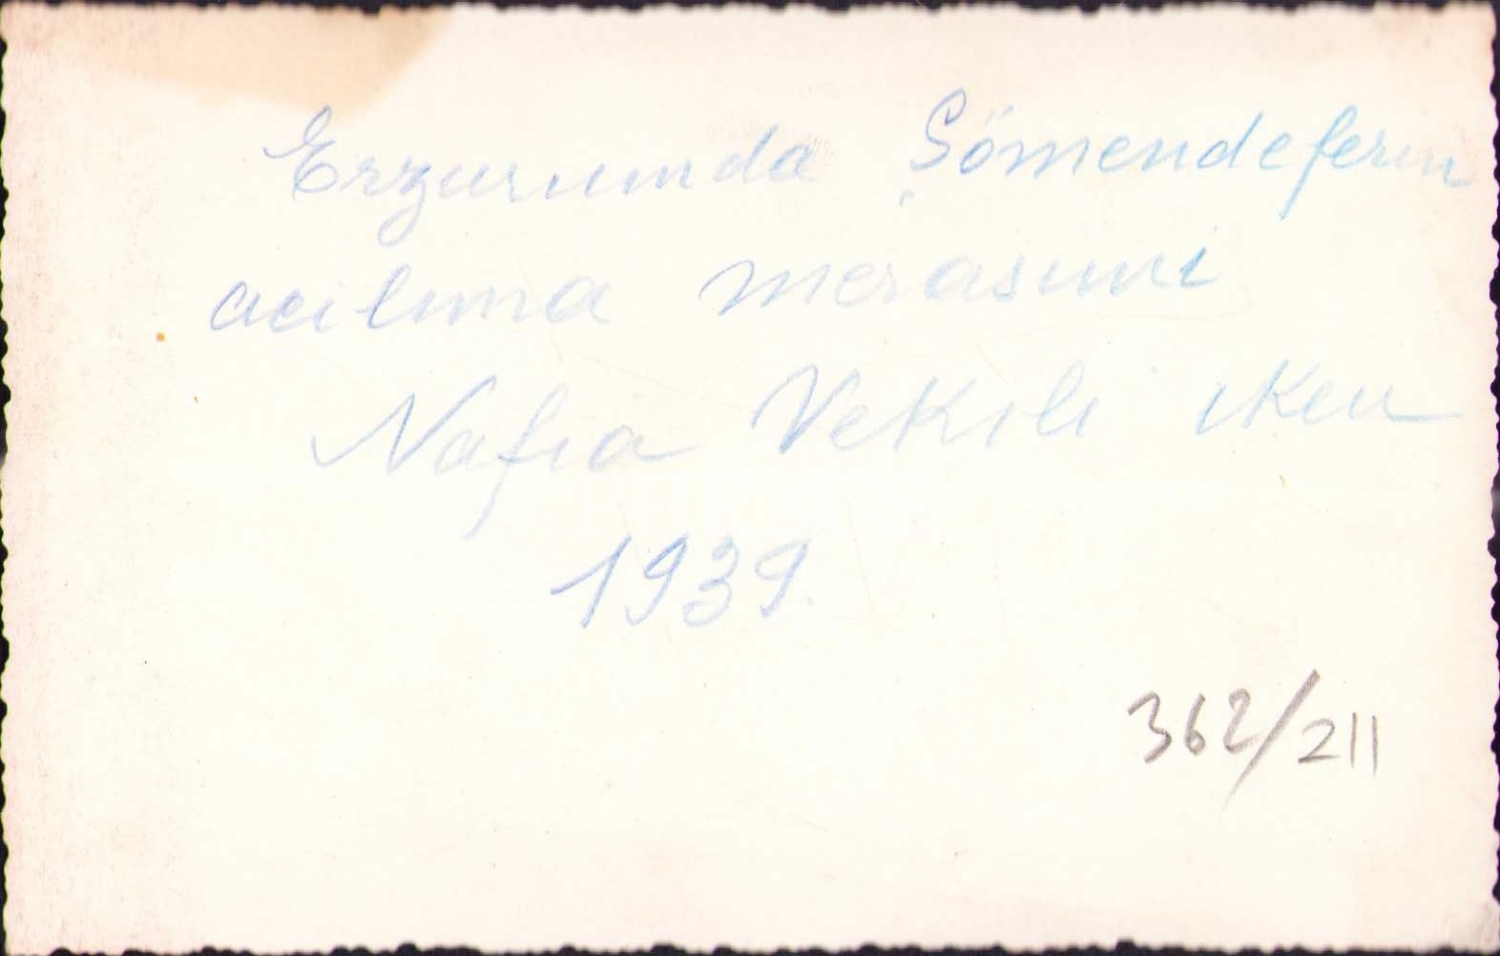 Erzurumda Şömendeferin
acilma merasimi
Nafia Vekili iken
1939
362/211